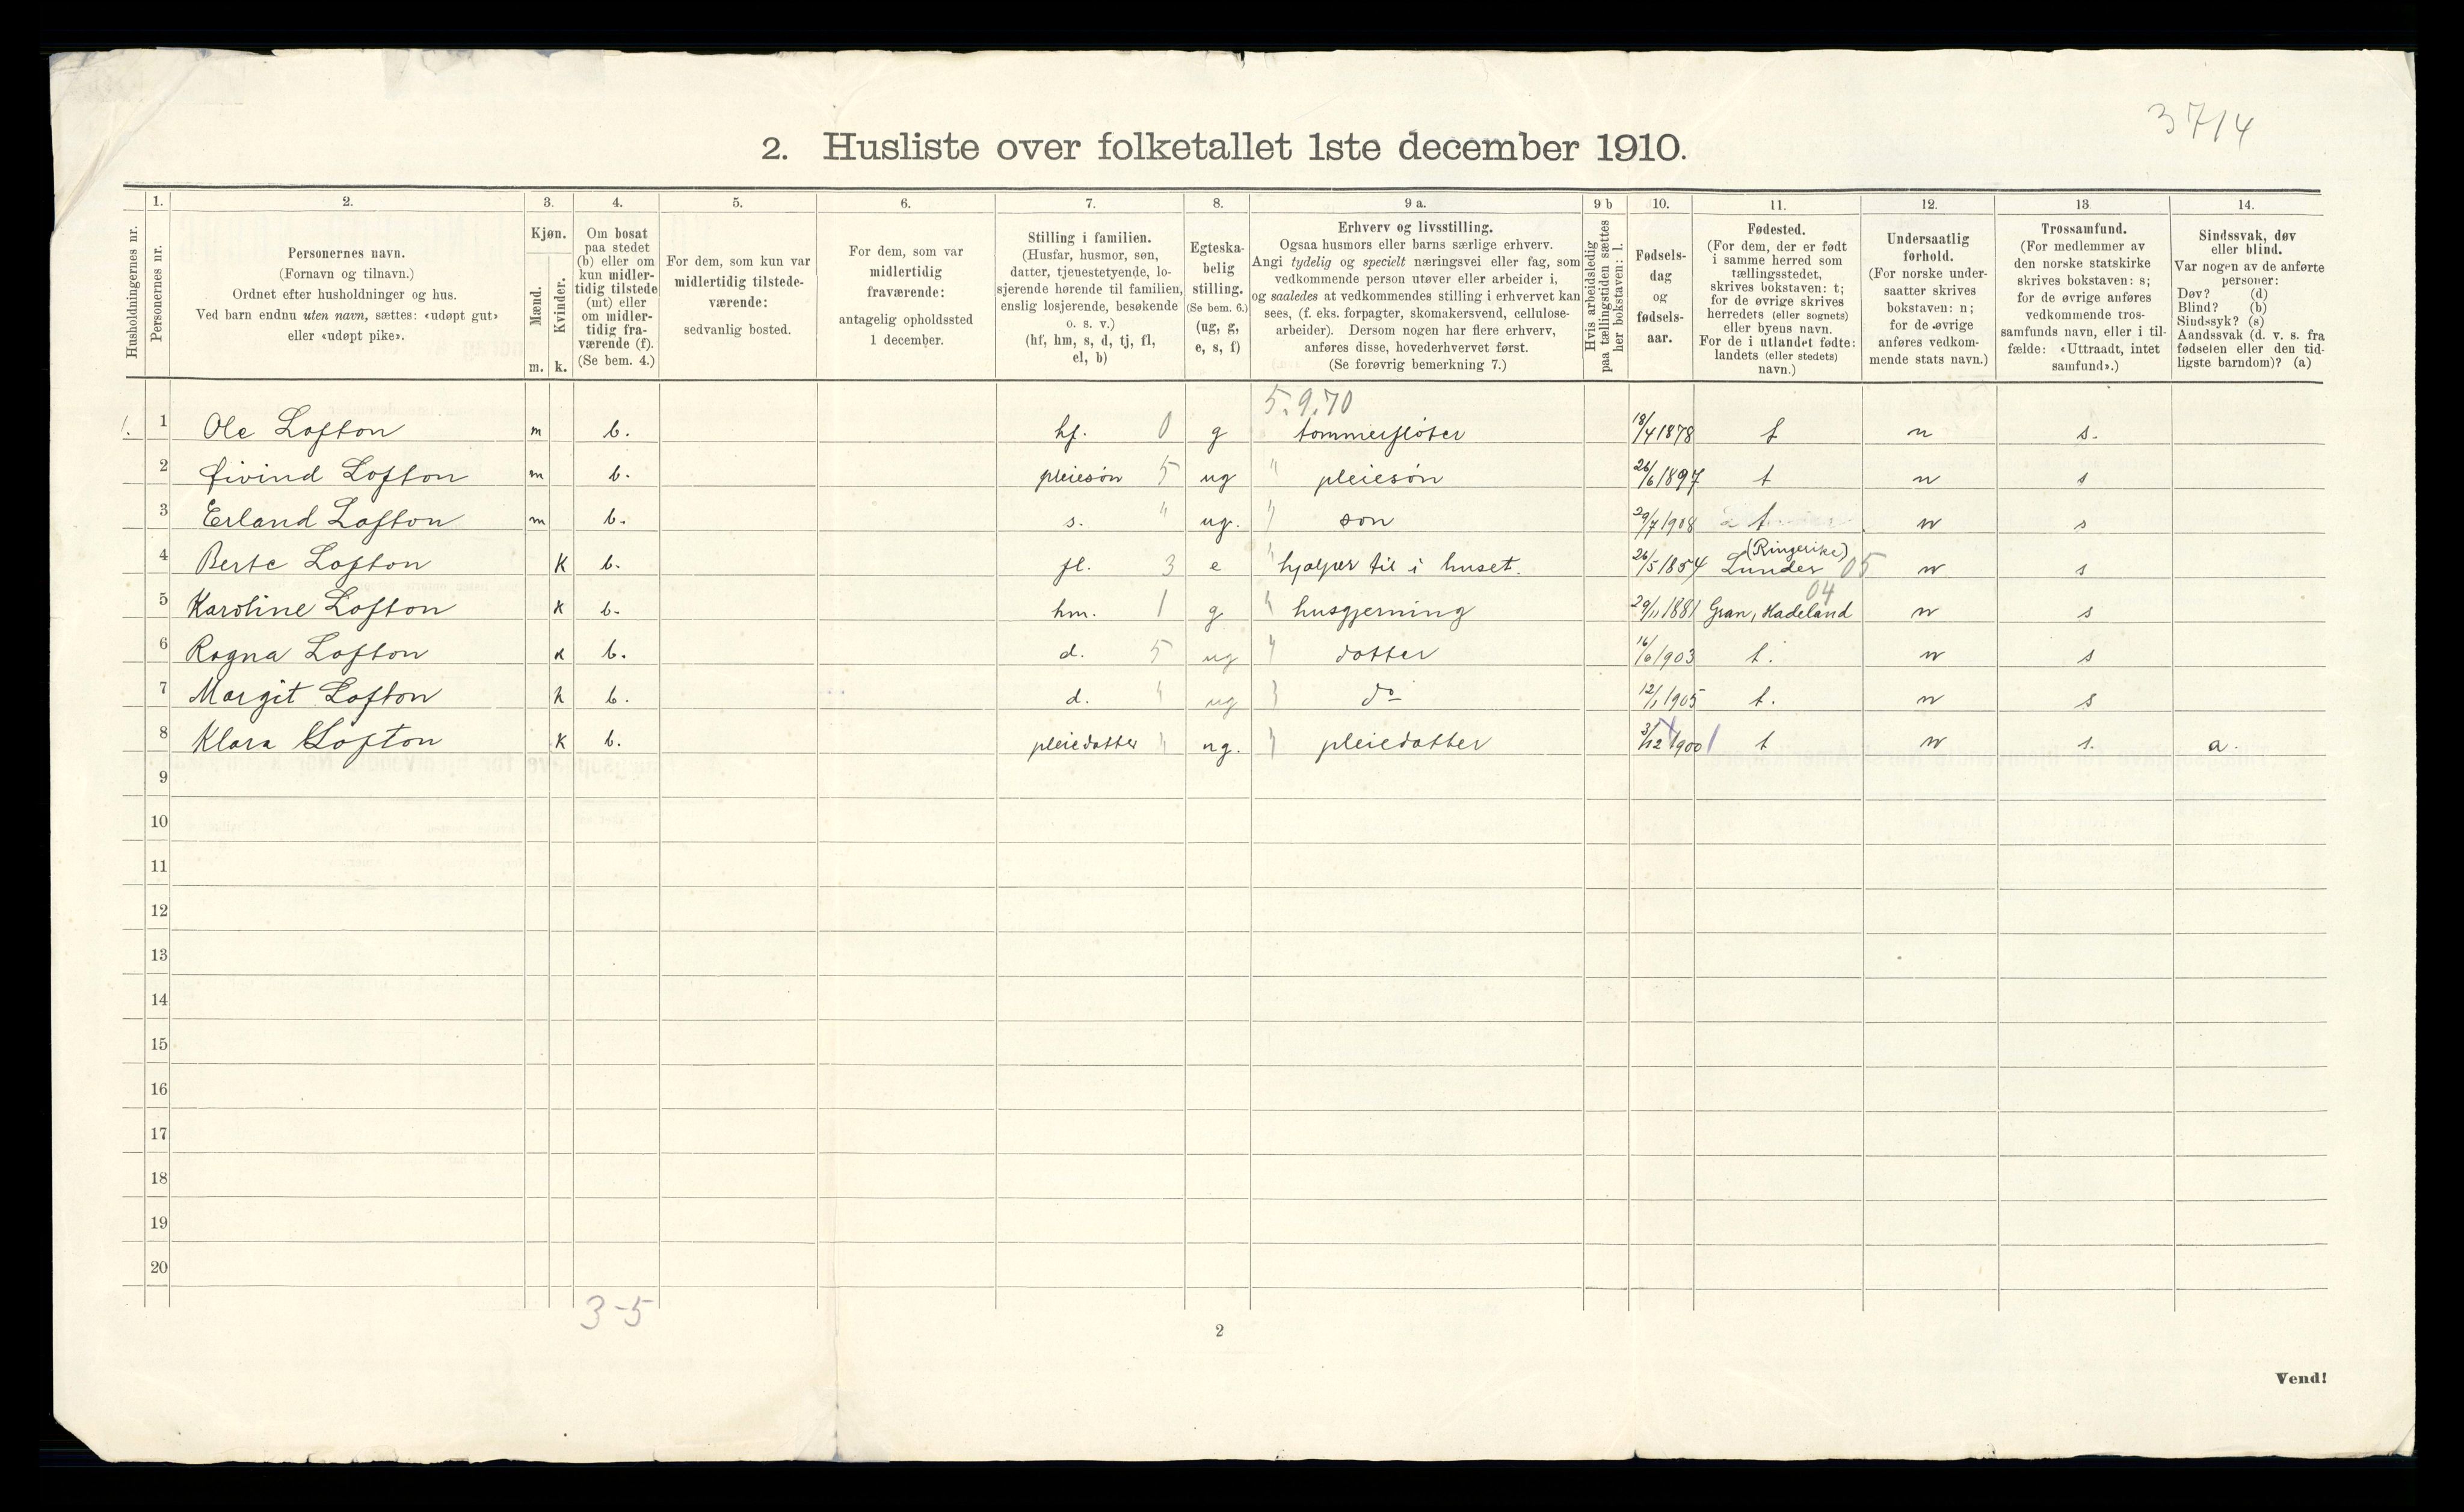 3714
2. Husliste over folketallet 1ste december 1910.
Husholdningernes nr.
1.
Personernes nr.
2.
Personernes navn.
(Fornavn og tilnavn.)
Ordnet efter husholdninger og hus.
Ved barn endnu uten navn, sættes: «udøpt gut»
eller «udøpt pike».
3.
Kjøn.
Mænd.
Kvinder.
m. k.
4.
Om bosat
paa stedet
(b) eller om
kun midler-
tidig tilstede
(mt) eller
om midler-
tidig fra-
værende (f).
(Se bem. 4.)
5.
For dem, som kun var
midlertidig tilstede-
værende:
sedvanlig bosted.
6.
For dem, som var
midlertidig
fraværende:
antagelig opholdssted
1 december.
7.
Stilling i familien.
(Husfar, husmor, søn,
datter, tjenestetyende, lo-
sjerende hørende til familien,
enslig losjerende, besøkende
o. s. v.)
(hf, hm, s, d, tj, fl,
el, b)
8.
Egteska-
belig
stilling.
(Se bem. 6.)
(ug, g,
e, s, f)
9 a.
Erhverv og livsstilling.
Ogsaa husmors eller barns særlige erhverv.
Angi tydelig og specielt næringsvei eller fag, som
vedkommende person utøver eller arbeider i,
og saaledes at vedkommendes stilling i erhvervet kan
sees, (f. eks. forpagter, skomakersvend, cellulose-
arbeider). Dersom nogen har flere erhverv,
anføres disse, hovederhvervet først.
(Se forøvrig bemerkning 7.)
9 b
Hvis arbeidsledig
paa tællingstiden sættes
her bokstaven: l.
10.
Fødsels-
dag
og
fødsels-
aar.
11.
Fødested.
(For dem, der er født
i samme herred som
tællingsstedet,
skrives bokstaven: t;
for de øvrige skrives
herredets (eller sognets)
eller byens navn.
For de i utlandet fødte:
landets (eller stedets)
navn.)
12.
Undersaatlig
forhold.
(For norske under-
saatter skrives
bokstaven: n;
for de øvrige
anføres vedkom-
mende stats navn.)
13
Trossamfund.
(For medlemmer av
den norske statskirke
skrives bokstaven: s;
for de øvrige anføres
vedkommende tros-
samfunds navn, eller i til-
fælde: «Uttraadt, intet
samfund».)
14.
Sindssvak, døv
eller blind.
Var nogen av de anførte
personer:
Døv? (d)
Blind? (b)
Sindssyk? (s)
Aandssvak (d. v. s. fra
fødselen eller den tid-
ligste barndom)? (a)
5.9.70
1. 1 Ole Lofton m b. hf. 0 g tømmerfløter 18/4 1878 t n s.
2 Øivind Lofton m b. pleiesøn 5 ug " pleiesøn 26/6 1897 t n s
3 Erland Lofton m b. s. " ug. " søn 29/7 1908 t n s
4 Berte Lofton K b. fl. 3 e " hjælper til i huset. 26/5 1854 (Ringerike) Lunder 05 n s
5 Karoline Lofton k b. hm. 1 g " husgjerning 29/11 1881 Gran, Hadeland 04 n s
6 Ragna Lofton k b. d. 5 ug " datter 16/6 1903 t. n s
7 Margit Lofton k b. d. " ug " do 12/1 1905 t. n s
8 Klara Lofton K b. pleiedatter " ug. " pleiedatter 3/12 1900 t n s. a.
9
10
11
12
13
14
15
16
17
18
19
20
3-5
2
Vend!